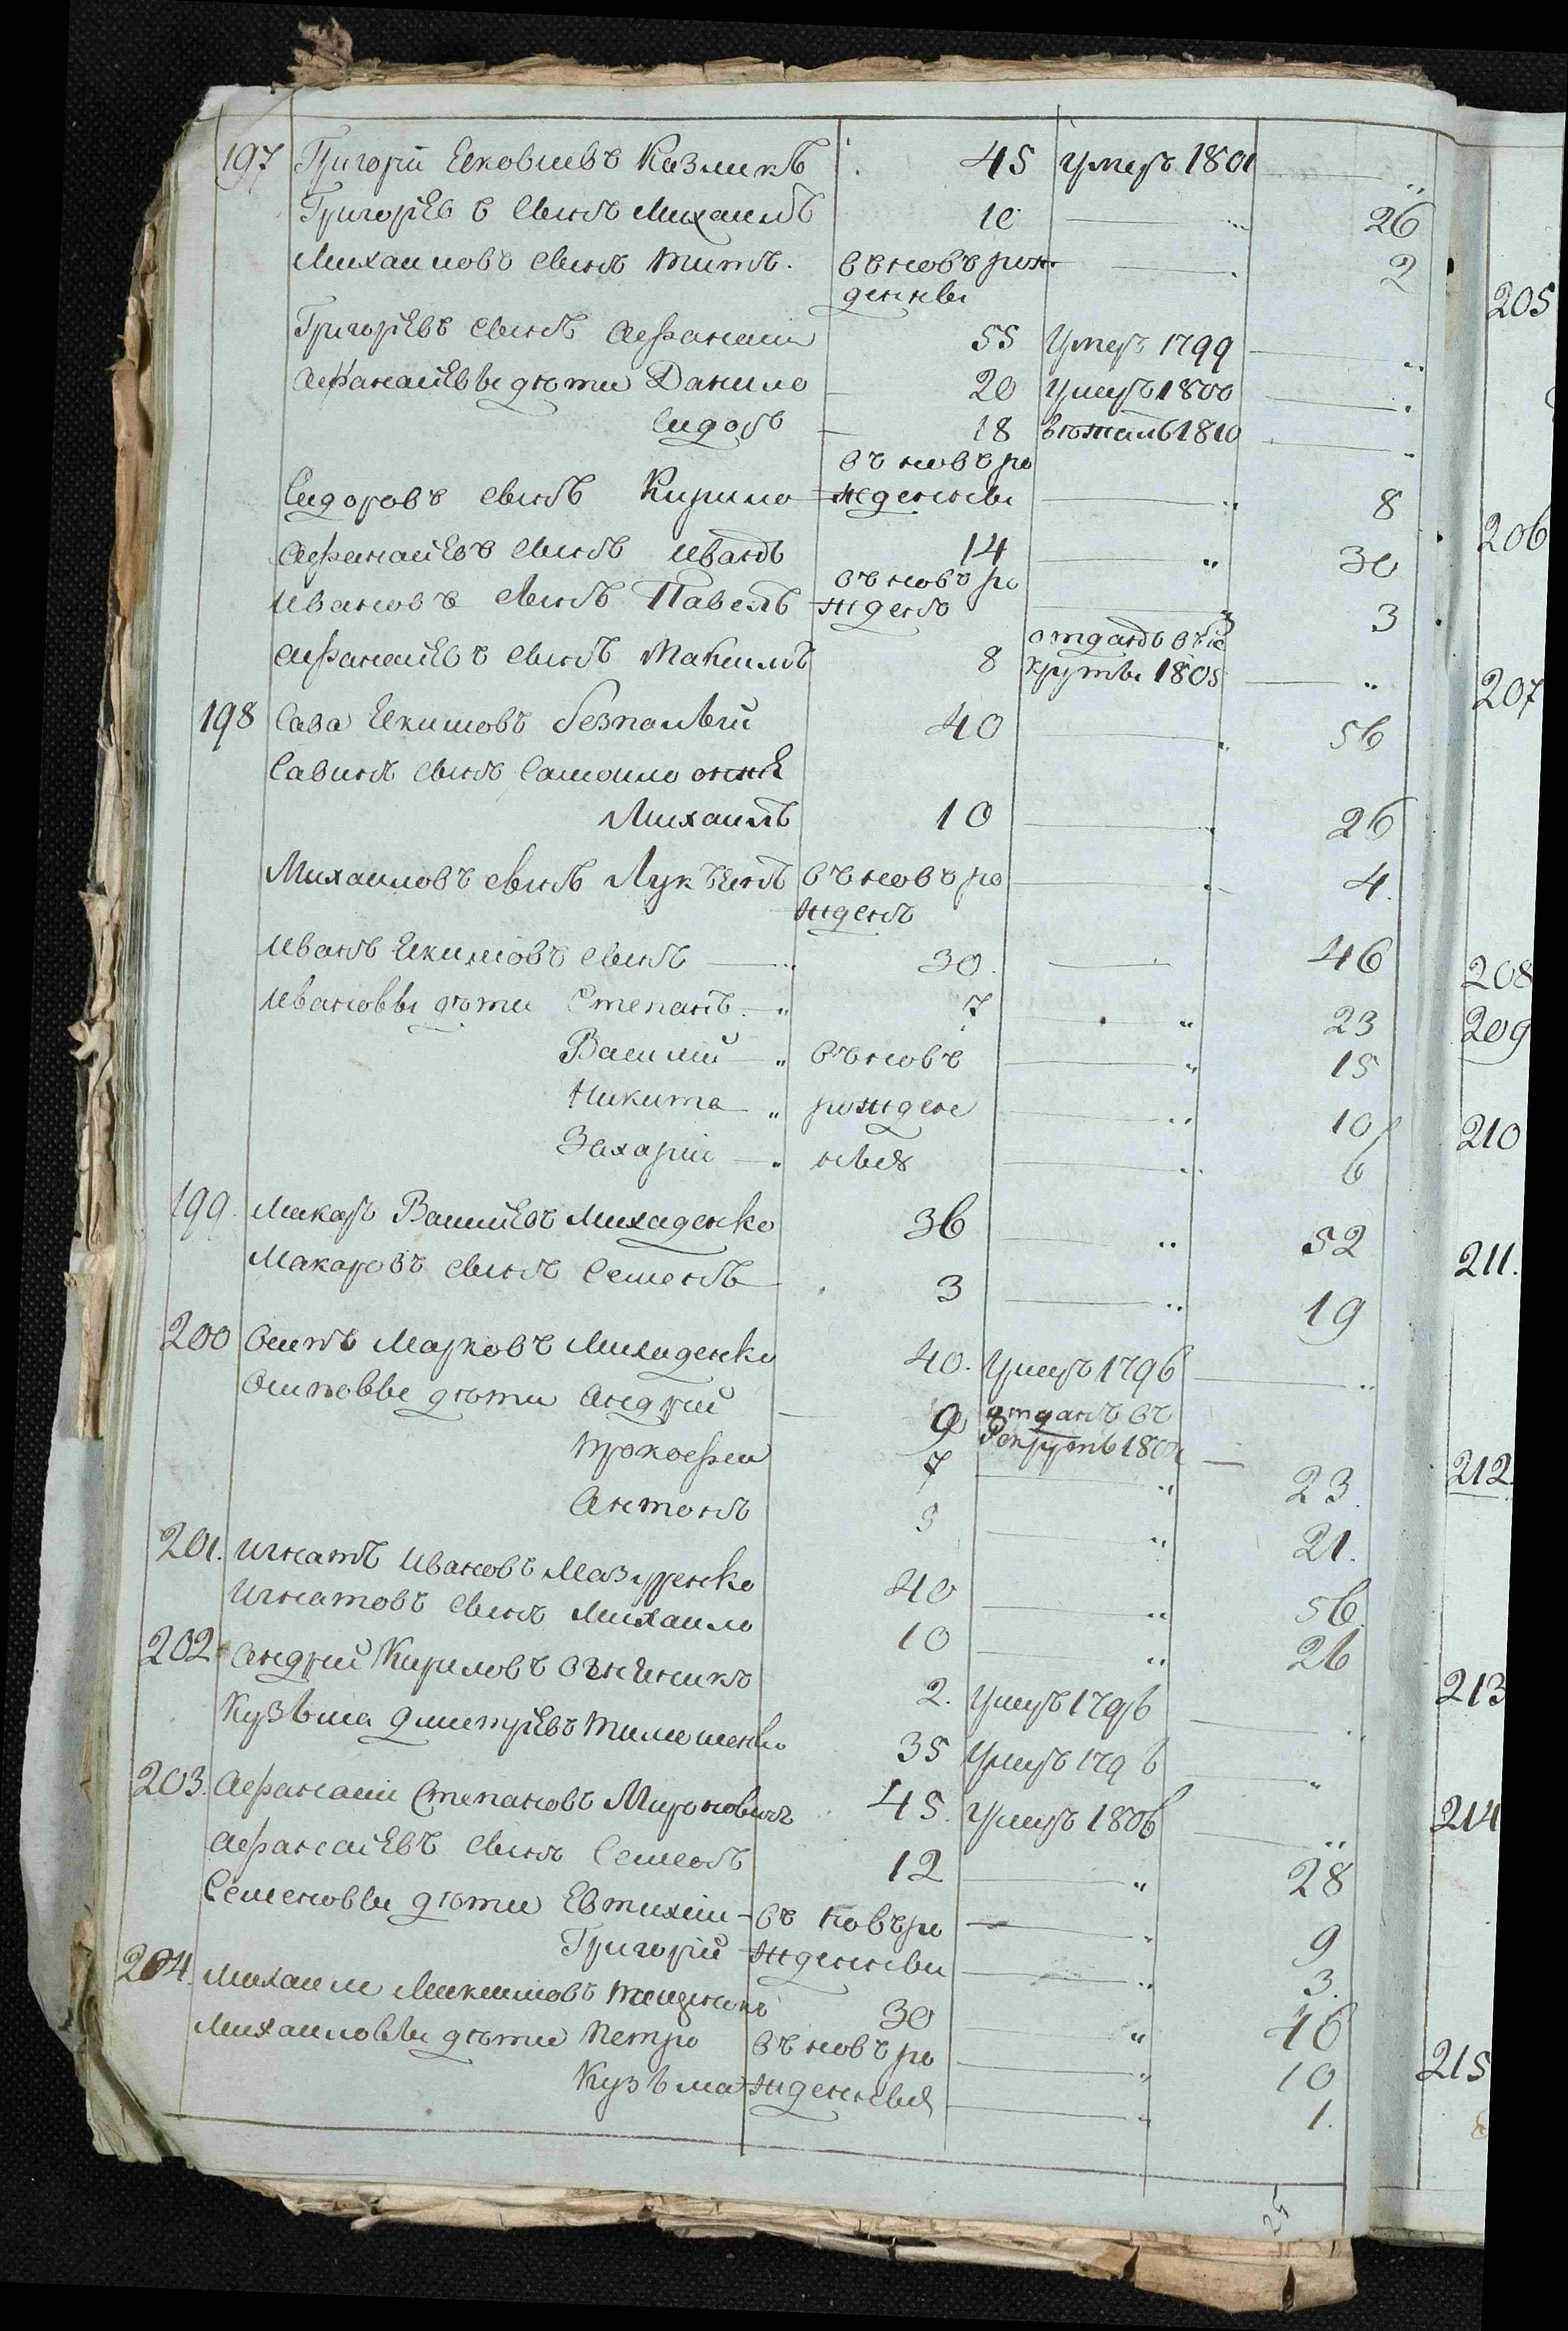 197 Григорій Яковлевъ Казликъ 45 умеръ 1801 „
Григорьевъ сынъ Михаилъ 10 „ 26
Михаиловъ сынъ Титъ. въ новъ рож „ 2
денны
Григорьевъ сынъ Афанасій 55 Умеръ 1799 „
Афанасьевы дѣти Данило 20 умеръ 1800 „
Сидоръ 18 1810 „
въ новъ ро
Сидоровъ сынъ Кирило жденны „ 8
Афанасьевъ сынъ Иванъ 14 „ 30
въ новъ ро
Ивановъ сынъ Павелъ жденъ „ 3
отданъ въ ре
Афанасьевъ сынъ Максимъ 8 круты 1805 „
198 Сава Якимовъ безпалый 40 „ 56
Савинъ сынъ Самоило онже
Михаилъ 10 „ 26
Михаиловъ сынъ Лукъянъ въ новъ ро „ 4.
жденъ
Иванъ Якимовъ сынъ „ 30. 46
Ивановы дѣти Степанъ „ 7 „ 23
Василій „ въ новъ „ 15
Никита „ рожден „ 10
Захарій „ ныя „ 6
199. Макаръ Васильевъ Миляденко 36 „ 52
Макаровъ сынъ Семенъ 3 „ 19
200 Осипъ Марковъ Миляденко 40. умеръ 1796 „
Осиповы дѣти Андрій 9 отданъ въ
Рекруты
Прокофій 7 „ 23.
Антонъ 5 „ 21.
201. Игнатъ Ивановъ Мазуренко 40 „ 56.
Игнатовъ сынъ Михаило 10 „ 26
202 Андрій Кириловъ 2. умеръ 1796 „
Кузьма Дмитріевъ Тимошенко 35 умеръ 1796 „
203. Афанасій Степановъ Мироновичъ 45. умеръ 1806 „
Афанасіевъ сынъ Семенъ 12 „ 28
Семеновы дѣти Евтихій въ новъ ро „ 9
Григорій жденны „ 3.
204. Михаил Максимовъ 30 „ 46
Михаиловы дѣти Петро въ новъ ро „ 10
Кузьма жденныя „ 1.
205
206
207
208
209
210
211.
212.
213
214
215